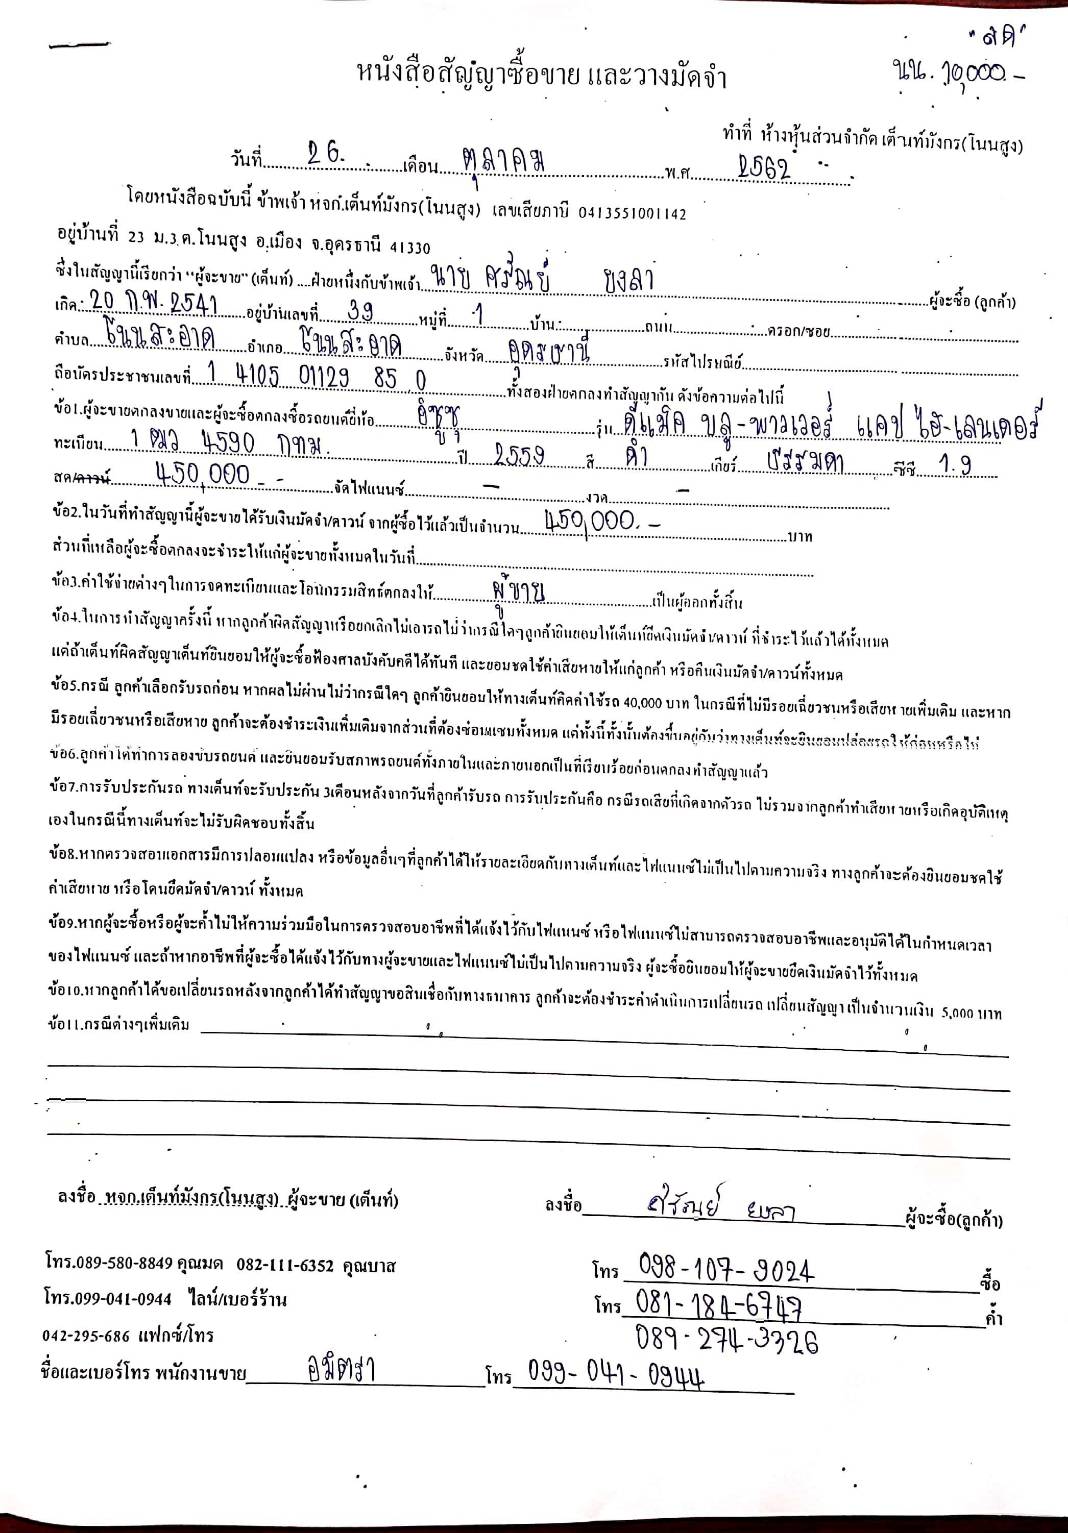 "สด"
นน. 10,000.-
หนังสือสัญญาซื้อขาย และวางมัดจำ
ทำที่ ห้างหุ้นส่วนจำกัด เต็นท์มังกร(โนนสูง)
วันที่ 26. เดือน ตุลาคม พ.ศ 2562
โดยหนังสือฉบับนี้ ข้าพเจ้า หจก.เต็นท์มังกร(โนนสูง) เลขเสียภาษี 0413551001142
อยู่บ้านที่ 23 ม.3 ต.โนนสูง อ.เมือง จ.อุดรธานี 41330
ซึ่งในสัญญานี้เรียกว่า "ผู้จะขาย" (เต็นท์) ....ฝ่ายหนึ่งกับข้าพเจ้า นาย ศรัณย์ ยงลา ผู้จะซื้อ (ลูกค้า)
เกิด: 20 ก.พ. 2541 อยู่บ้านเลขที่ 39 หมู่ที่ 1 บ้าน: ถนน ตรอก/ซอย
ตำบล โนนสะอาด อำเภอ โนนสะอาด จังหวัด อุดรธานี รหัสไปรษณีย์
ถือบัตรประชาชนเลขที่ 1 4105 01129 85 0 ทั้งสองฝ่ายตกลงทำสัญญากัน ดังข้อความต่อไปนี้
ข้อ1.ผู้จะขายตกลงขายและผู้จะซื้อตกลงซื้อรถยนต์ยี่ห้อ อีซูซุ รุ่น ดีแม็ค บลู-พาวเวอร์ แคป ไฮ-เลนเดอร์
ทะเบียน 1 ฒว 4590 กทม. ปี 2559 สี ดำ เกียร์ ธรรมดา ซีซี 1.9
สด/ดาวน์ 450,000.- จัดไฟแนนซ์ - งวด -
ข้อ2.ในวันที่ทำสัญญานี้ผู้จะขายได้รับเงินมัดจำ/ดาวน์ จากผู้ซื้อไว้แล้วเป็นจำนวน 450,000.- บาท
ส่วนที่เหลือผู้จะซื้อตกลงจะชำระให้แก่ผู้จะขายทั้งหมดในวันที่
ข้อ3.ค่าใช้จ่ายต่างๆในการจดทะเบียนและโอนกรรมสิทธิ์ตกลงให้ ผู้ขาย เป็นผู้ออกทั้งสิ้น
ข้อ4.ในการทำสัญญาครั้งนี้ หากลูกค้าผิดสัญญาหรือยกเลิกไม่เอารถไม่ว่ากรณีใดๆลูกค้ายินยอมให้เต็นท์ยึดเงินมัดจำ/ดาวน์ ที่ชำระไว้แล้วได้ทั้งหมด
แต่ถ้าเต็นท์ผิดสัญญาเต็นท์ยินยอมให้ผู้จะซื้อฟ้องศาลบังคับคดีได้ทันที และยอมชดใช้ค่าเสียหายให้แก่ลูกค้า หรือคืนเงินมัดจำ/ดาวน์ทั้งหมด
ข้อ5.กรณี ลูกค้าเลือกรับรถก่อน หากผลไม่ผ่านไม่ว่ากรณีใดๆ ลูกค้ายินยอมให้ทางเต็นท์คิดค่าใช้รถ 40,000 บาท ในกรณีที่ไม่มีรอยเฉี่ยวชนหรือเสียหายเพิ่มเติม และหาก
มีรอยเฉี่ยวชนหรือเสียหาย ลูกค้าจะต้องชำระเงินเพิ่มเติมจากส่วนที่ต้องซ่อมแซมทั้งหมด แต่ทั้งนี้ทั้งนั้นต้องขึ้นอยู่กับว่าทางเต็นท์จะยินยอมปล่อยรถให้ก่อนหรือไม่
ข้อ6.ลูกค้าได้ทำการลองขับรถยนต์ และยินยอมรับสภาพรถยนต์ทั้งภายในและภายนอกเป็นที่เรียบร้อยก่อนตกลงทำสัญญาแล้ว
ข้อ7.การรับประกันรถ ทางเต็นท์จะรับประกัน 3เดือนหลังจากวันที่ลูกค้ารับรถ การรับประกันคือ กรณีรถเสียที่เกิดจากตัวรถ ไม่รวมจากลูกค้าทำเสียหายหรือเกิดอุบัติเหตุ
เองในกรณีนี้ทางเต็นท์จะไม่รับผิดชอบทั้งสิ้น
ข้อ8.หากตรวจสอบเอกสารมีการปลอมแปลง หรือข้อมูลอื่นๆที่ลูกค้าได้ให้รายละเอียดกับทางเต็นท์และไฟแนนซ์ไม่เป็นไปตามความจริง ทางลูกค้าจะต้องยินยอมชดใช้
ค่าเสียหาย หรือโดนยึดมัดจำ/ดาวน์ ทั้งหมด
ข้อ9.หากผู้จะซื้อหรือผู้จะค้ำไม่ให้ความร่วมมือในการตรวจสอบอาชีพที่ได้แจ้งไว้กับไฟแนนซ์ หรือไฟแนนซ์ไม่สามารถตรวจสอบอาชีพและอนุมัติได้ในกำหนดเวลา
ของไฟแนนซ์ และถ้าหากอาชีพที่ผู้จะซื้อได้แจ้งไว้กับทางผู้จะขายและไฟแนนซ์ไม่เป็นไปตามความจริง ผู้จะซื้อยินยอมให้ผู้จะขายยึดเงินมัดจำไว้ทั้งหมด
ข้อ10.หากลูกค้าได้ขอเปลี่ยนรถหลังจากลูกค้าได้ทำสัญญาขอสินเชื่อกับทางธนาคาร ลูกค้าจะต้องชำระค่าดำเนินการเปลี่ยนรถ เปลี่ยนสัญญา เป็นจำนวนเงิน 5,000 บาท
ข้อ11.กรณีต่างๆเพิ่มเติม
ลงชื่อ หจก.เต็นท์มังกร(โนนสูง) ผู้จะขาย (เต็นท์)
ลงชื่อ ศรัณย์ ยงลา ผู้จะซื้อ(ลูกค้า)
โทร.089-580-8849 คุณมด 082-111-6352 คุณบาส
โทร 098-107-9024 ซื้อ
โทร.099-041-0944 ไลน์/เบอร์ร้าน
โทร 081-184-6747 ค้ำ
042-295-686 แฟกซ์/โทร
089-274-3326
ชื่อและเบอร์โทร พนักงานขาย อมิตรา โทร 099-041-0944